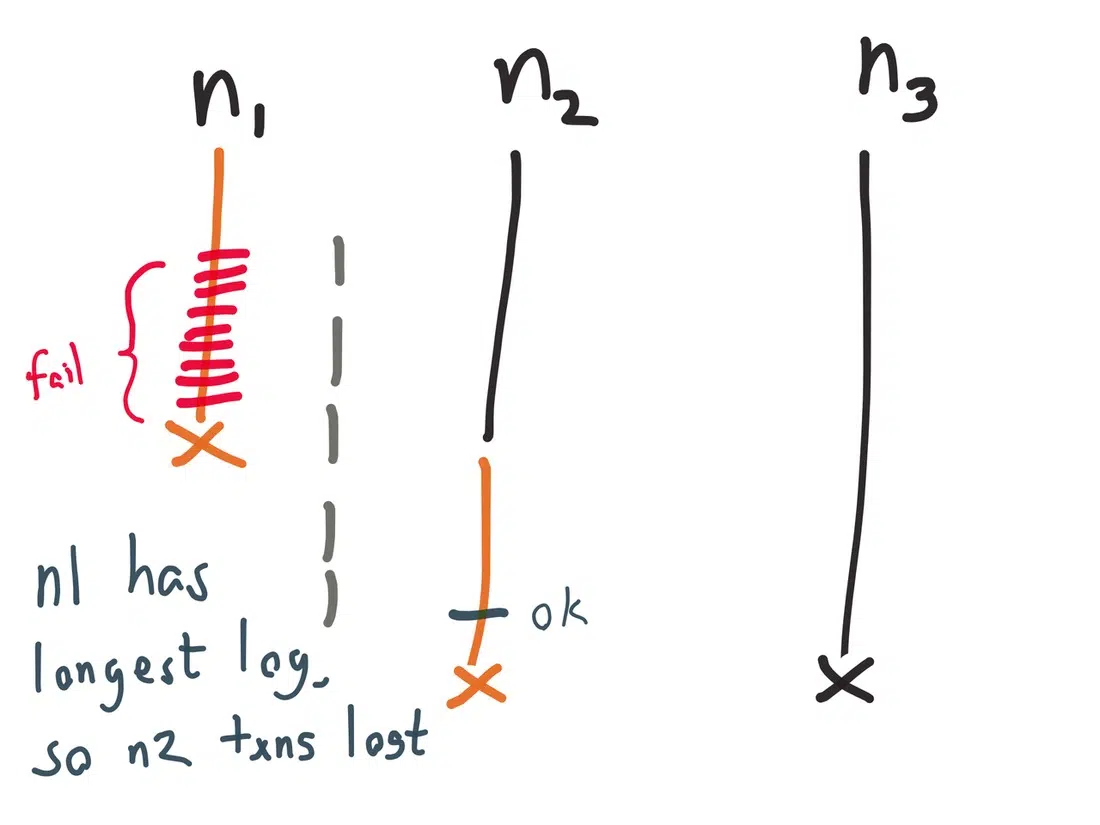 n₁ n₂ n₃
fail
ok
n1 has
longest log,
so n2 txns lost